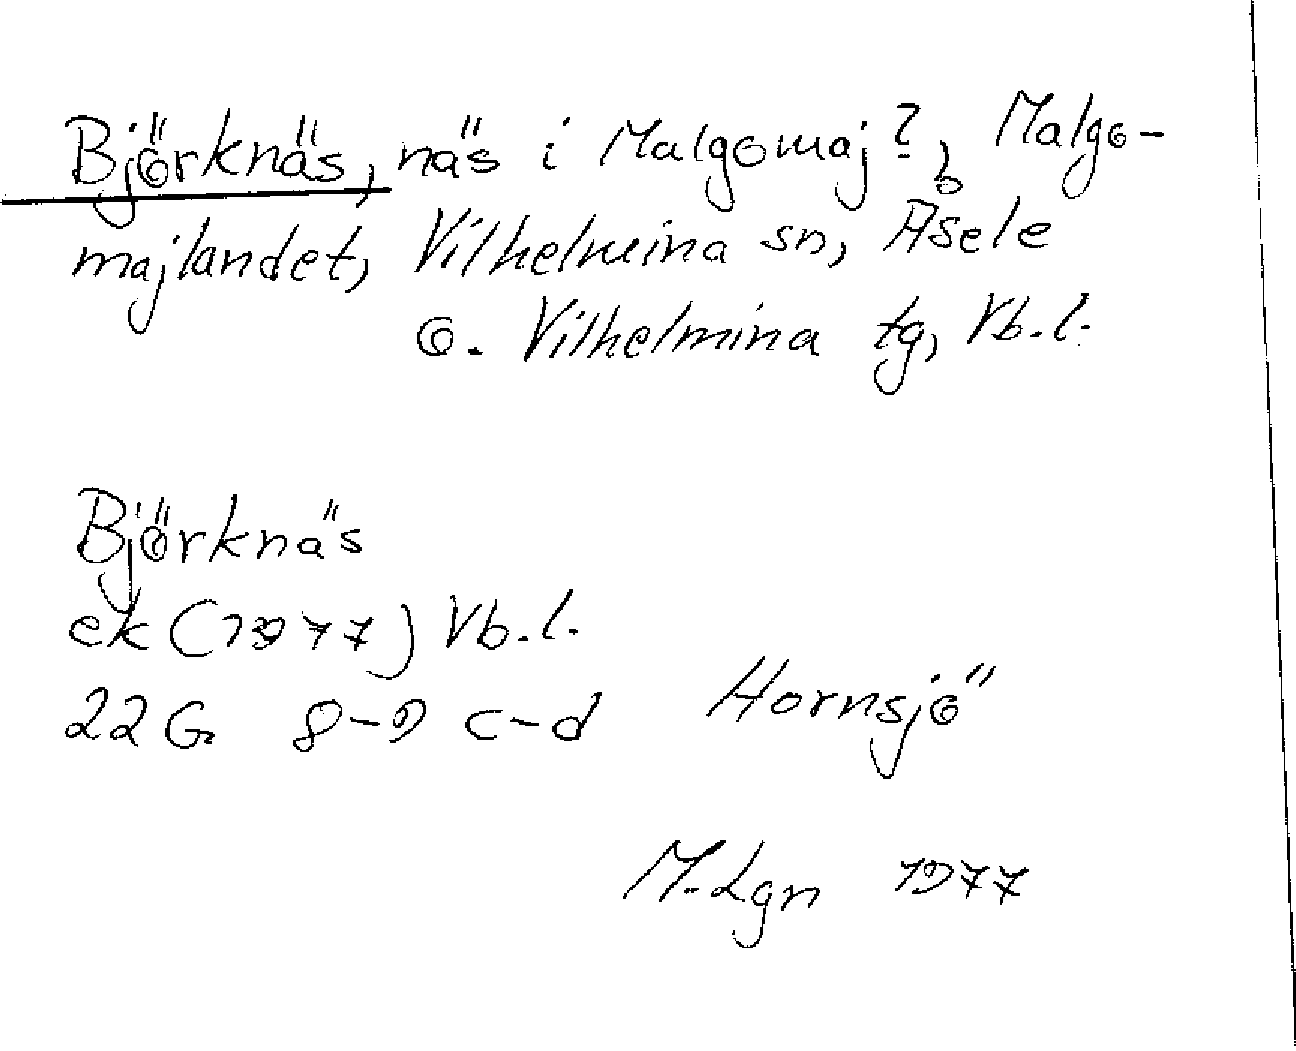 Björknäs, näs i Malgomaj?, Malgo-
majlandet, Vilhelmina sn, Åsele
o. Vilhelmina tg, Vb.l.
Björknäs
ek (1977) Vb.l.
22 G 8-9 c-d Hornsjö
M.Lgn 1977